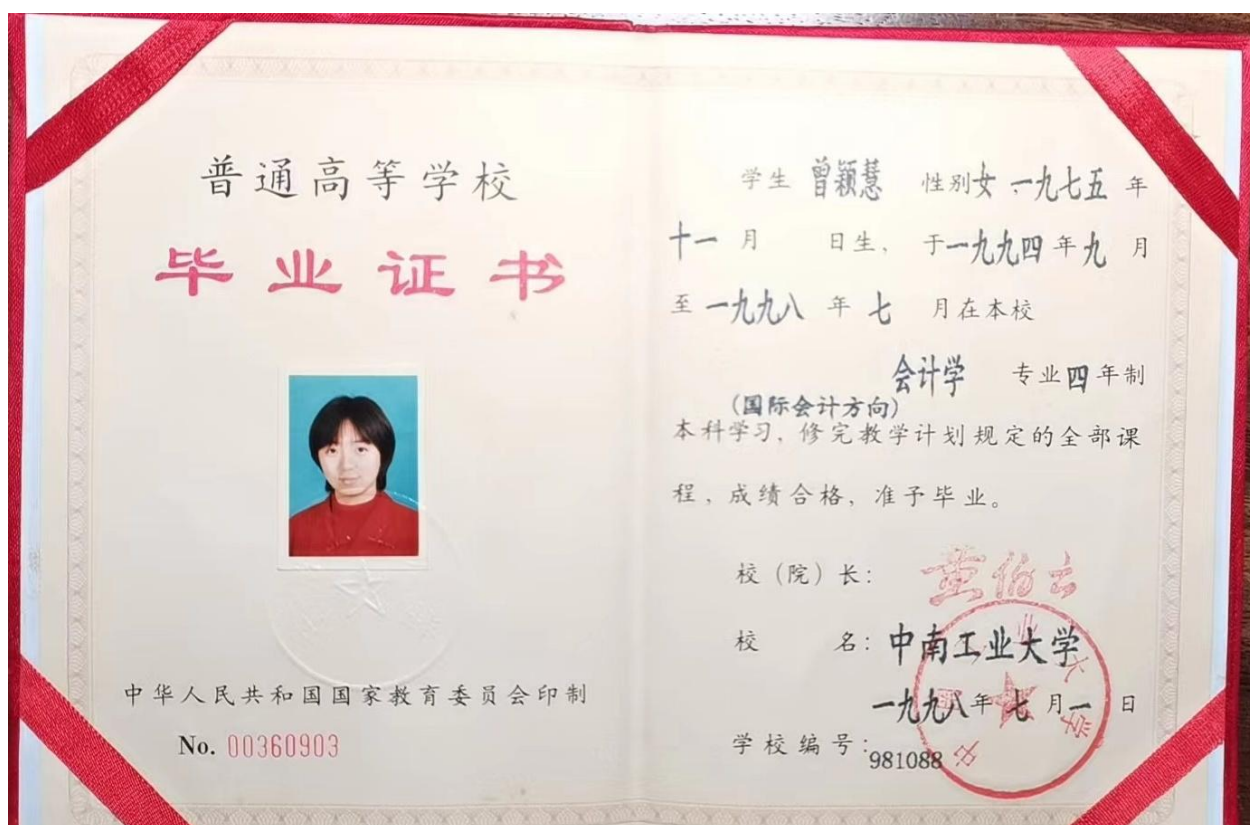 普通高等学校
毕业证书
中华人民共和国国家教育委员会印制
No. 00360903
学生 曾颖慧 性别女、一九七五 年
十一 月 日生，于一九九四年九 月
至 一九九八 年 七 月在本校
会计学 专业四年制
(国际会计方向)
本科学习，修完教学计划规定的全部课
程，成绩合格，准予毕业。
校（院）长： 黄伯云
校 名：中南工业大学
一九九八年七月一日
学校编号：981088